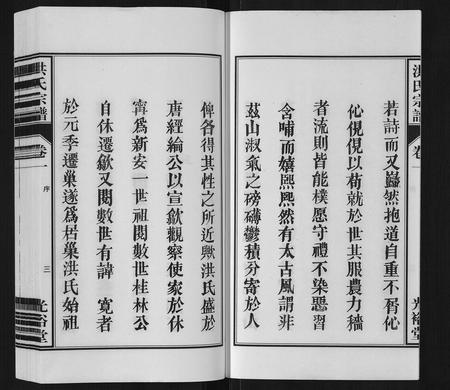 洪氏宗譜
卷一
若詩而又囂然抱道自重不屑仳
仳俔俔以苟就於世其服農力穡
者流則皆能樸愿守禮不染惡習
含哺而嬉熙熙然有太古風謂非
茲山淑氣之磅礡鬱積分寄於人
光裕堂
俾各得其性之所近歟洪氏盛於
唐經綸公以宣歙觀察使家於休
甯為新安一世祖閱數世桂林公
自休遷歙又閱數世有諱 寬者
於元季遷巢遂為居巢洪氏始祖
洪氏宗譜
卷一
序
三
光裕堂